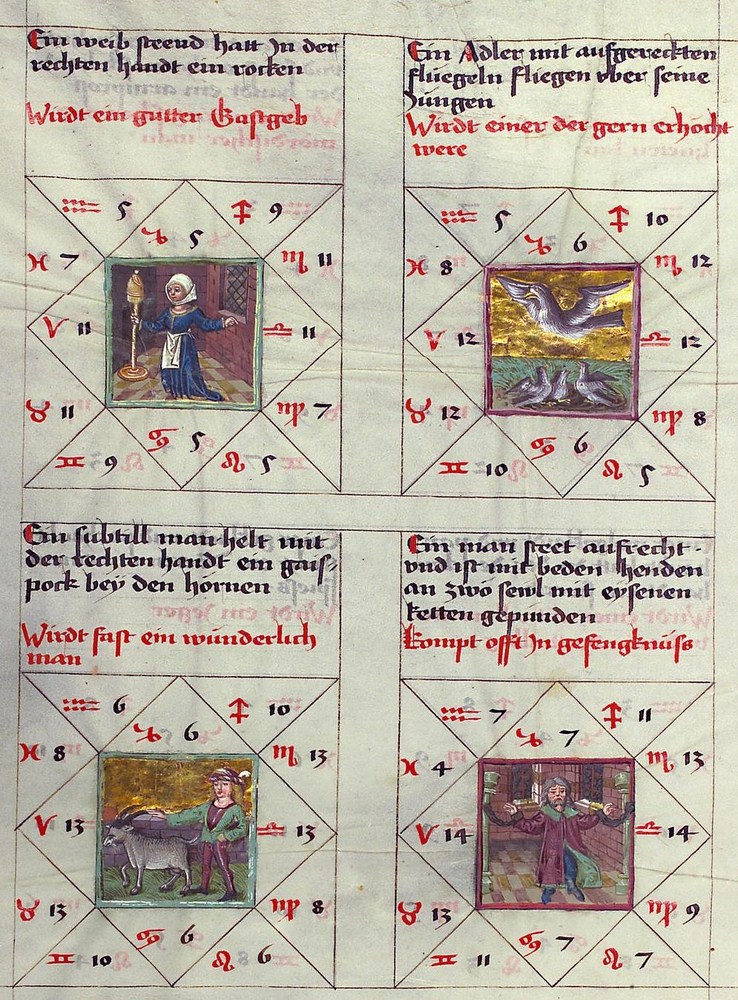 Ein weib steend hatt In der
rechten handt ein rocken
Wirdt ein gutter Gastgeb
♒ 5 ♐ 9
♑ 5
♓ 7 ♏ 11
♈ 11 ♎ 11
♉ 11 ♍ 7
♋ 5
♊ 9 ♌ 5
Ein Adler mit aufgereckten
fluegeln fliegen vber seine
Jungen
Wirdt einer der gern erhöcht
were
♒ 5 ♐ 10
♑ 6
♓ 8 ♏ 12
♈ 12 ♎ 12
♉ 12 ♍ 8
♋ 6
♊ 10 ♌ 5
Ein subtill man helt mit
der rechten handt ein gais-
pock bey den hörnen
Wirdt fast ein wunderlich
man
♒ 6 ♐ 10
♑ 6
♓ 8 ♏ 13
♈ 13 ♎ 13
♉ 13 ♍ 8
♋ 6
♊ 10 ♌ 6
Ein man steet aufrecht ·
vnd ist mit beden henden
an zwö sewl mit eysenen
ketten gepunden
Kompt offt In gefengknüss
♒ 7 ♐ 11
♑ 7
♓ 4 ♏ 13
♈ 14 ♎ 14
♉ 13 ♍ 9
♋ 7
♊ 11 ♌ 7